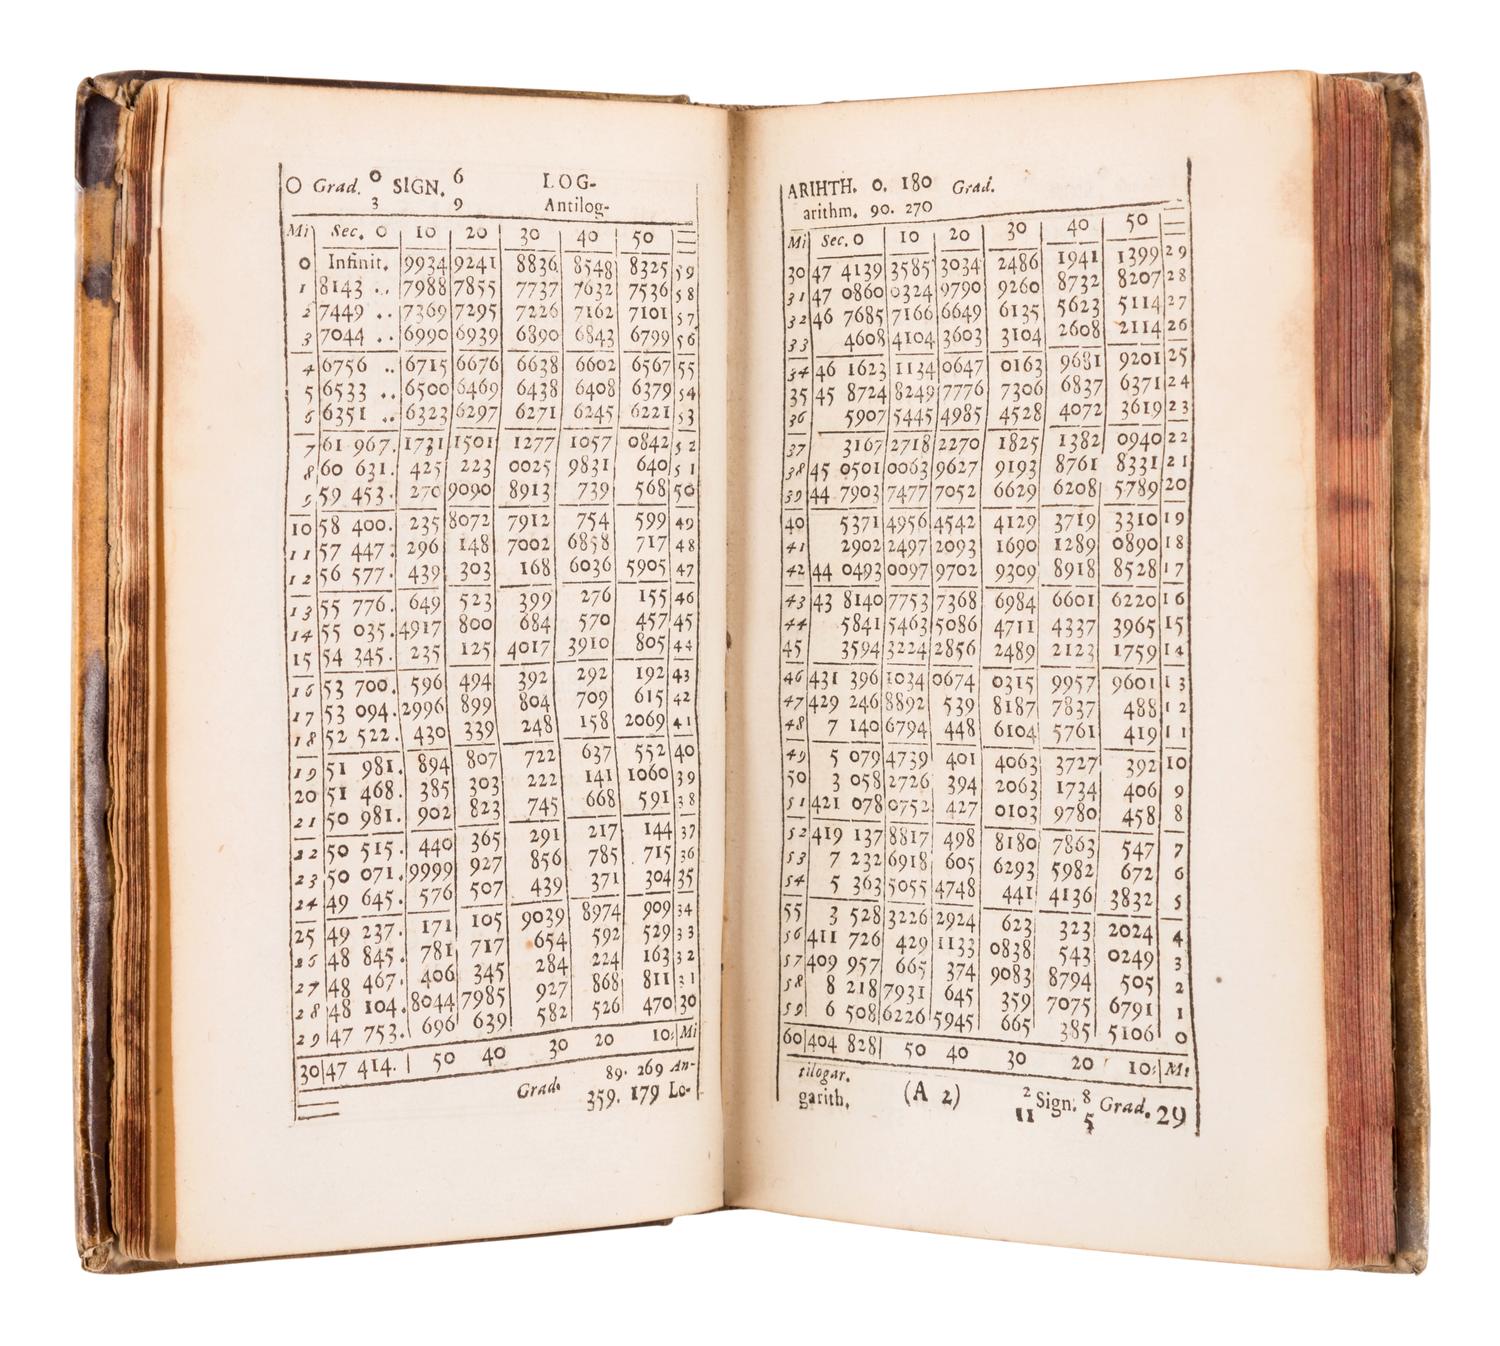 0 Grad. 0 SIGN. 6 LOG-
3 9 Antilog-
Mi Sec. 0 10 20 30 40 50
0 Infinit. 9934 9241 8836 8548 8325 59
1 8143 .. 7988 7855 7737 7632 7536 58
2 7449 .. 7369 7295 7226 7162 7101 57
3 7044 .. 6990 6939 6890 6843 6799 56
4 6756 .. 6715 6676 6638 6602 6567 55
5 6533 .. 6500 6469 6438 6408 6379 54
6 6351 .. 6323 6297 6271 6245 6221 53
7 61 967. 1731 1501 1277 1057 0842 52
8 60 631. 425 223 0025 9831 640 51
9 59 453. 270 9090 8913 739 568 50
10 58 400. 235 8072 7912 754 599 49
11 57 447. 296 148 7002 6858 717 48
12 56 577. 439 303 168 6036 5905 47
13 55 776. 649 523 399 276 155 46
14 55 035. 4917 800 684 570 457 45
15 54 345. 235 125 4017 3910 805 44
16 53 700. 596 494 392 292 192 43
17 53 094. 2996 899 804 709 615 42
18 52 522. 430 339 248 158 2069 41
19 51 981. 894 807 722 637 552 40
20 51 468. 385 303 222 141 1060 39
21 50 981. 902 823 745 668 591 38
22 50 515. 440 365 291 217 144 37
23 50 071. 9999 927 856 785 715 36
24 49 645. 576 507 439 371 304 35
25 49 237. 171 105 9039 8974 909 34
26 48 845. 781 717 654 592 529 33
27 48 467. 406 345 284 224 163 32
28 48 104. 8044 7985 927 868 811 31
29 47 753. 696 639 582 526 470 30
30 47 414. 50 40 30 20 10: Mi
Grad. 89. 269 An-
359. 179 Lo-
ARIHTH. 0. 180 Grad.
arithm. 90. 270
Mi Sec. 0 10 20 30 40 50
30 47 4139 3585 3034 2486 1941 1399 29
31 47 0860 0324 9790 9260 8732 8207 28
32 46 7685 7166 6649 6135 5623 5114 27
33 4608 4104 3603 3104 2608 2114 26
34 46 1623 1134 0647 0163 9681 9201 25
35 45 8724 8249 7776 7306 6837 6371 24
36 5907 5445 4985 4528 4072 3619 23
37 3167 2718 2270 1825 1382 0940 22
38 45 0501 0063 9627 9193 8761 8331 21
39 44 7903 7477 7052 6629 6208 5789 20
40 5371 4956 4542 4129 3719 3310 19
41 2902 2497 2093 1690 1289 0890 18
42 44 0493 0097 9702 9309 8918 8528 17
43 43 8140 7753 7368 6984 6601 6220 16
44 5841 5463 5086 4711 4337 3965 15
45 3594 3224 2856 2489 2123 1759 14
46 431 396 1034 0674 0315 9957 9601 13
47 429 246 8892 539 8187 7837 488 12
48 7 140 6794 448 6104 5761 419 11
49 5 079 4739 401 4063 3727 392 10
50 3 058 2726 394 2063 1734 406 9
51 421 078 0752 427 0103 9780 458 8
52 419 137 8817 498 8180 7863 547 7
53 7 232 6918 605 6293 5982 672 6
54 5 363 5055 4748 441 4136 3832 5
55 3 528 3226 2924 623 323 2024 4
56 411 726 429 1133 0838 543 0249 3
57 409 957 665 374 9083 8794 505 2
58 8 218 7931 645 359 7075 6791 1
59 6 508 6226 5945 665 385 5106 0
60 404 828 50 40 30 20 10: Mi
tilogar. 2 8
garith. (A 2) 11 Sign. 5 Grad. 29